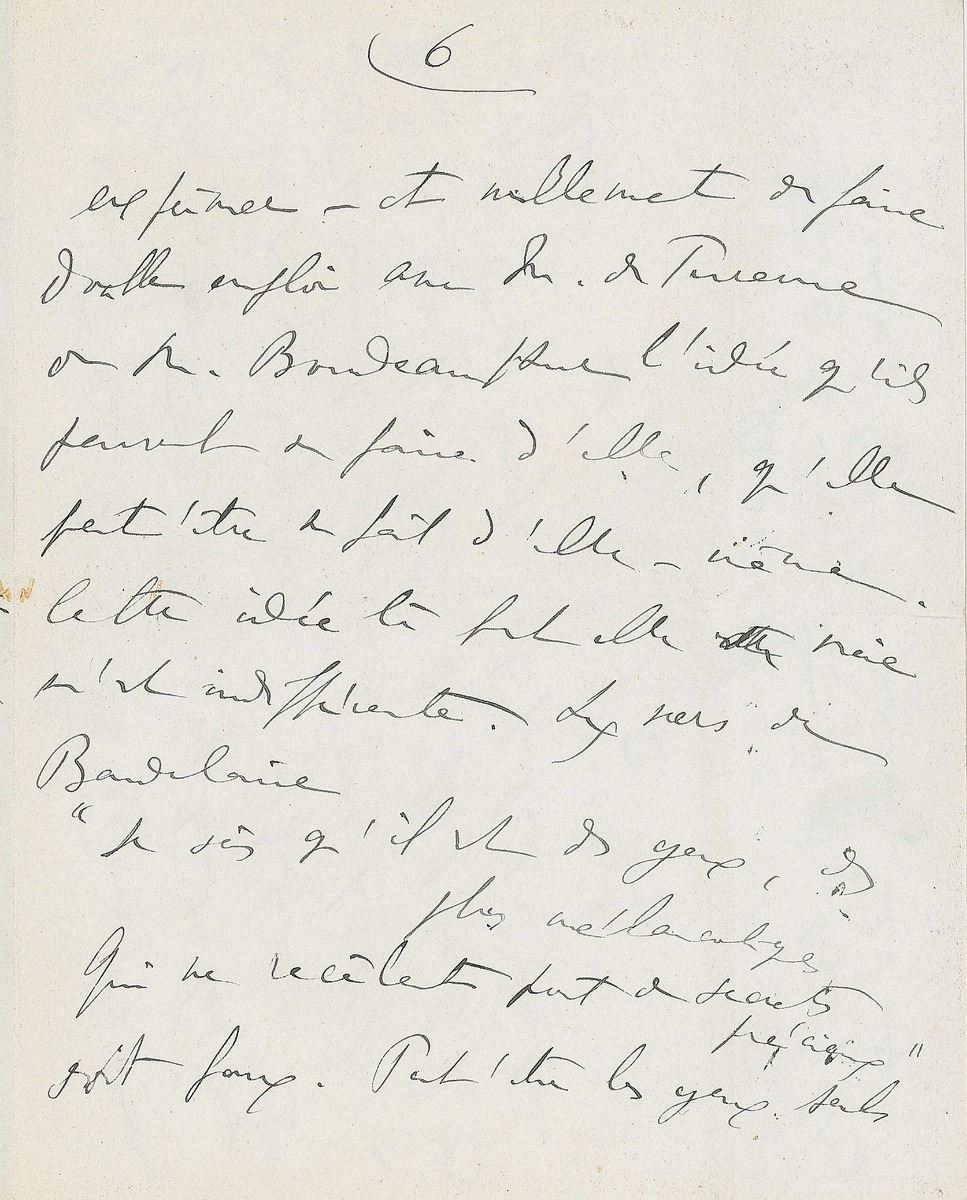 6
exprimer – et nullement de faire
double emploi avec M. de Turenne
ou M. Bordeaux l'idée qu'ils
peuvent se faire d'elle, qu'elle
peut'être se fait d'elle-même.
Cette idée là fut elle vraie
m'est indifférente. Les vers de
Baudelaire
"Je sais qu'il est des yeux, des
plus mélancoliques
Qui ne recèlent point de secrets
précieux"
sont faux. Peut'être les yeux seuls